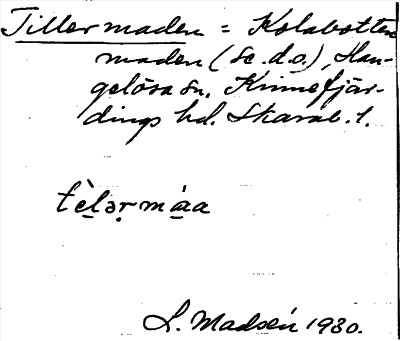 Tillermaden = Kolabotten
maden (se d.o.), Han-
gelösa sn, Kinnefjär-
dings hd. Skarab. l.
tèlər máa
L. Madsén 1930.